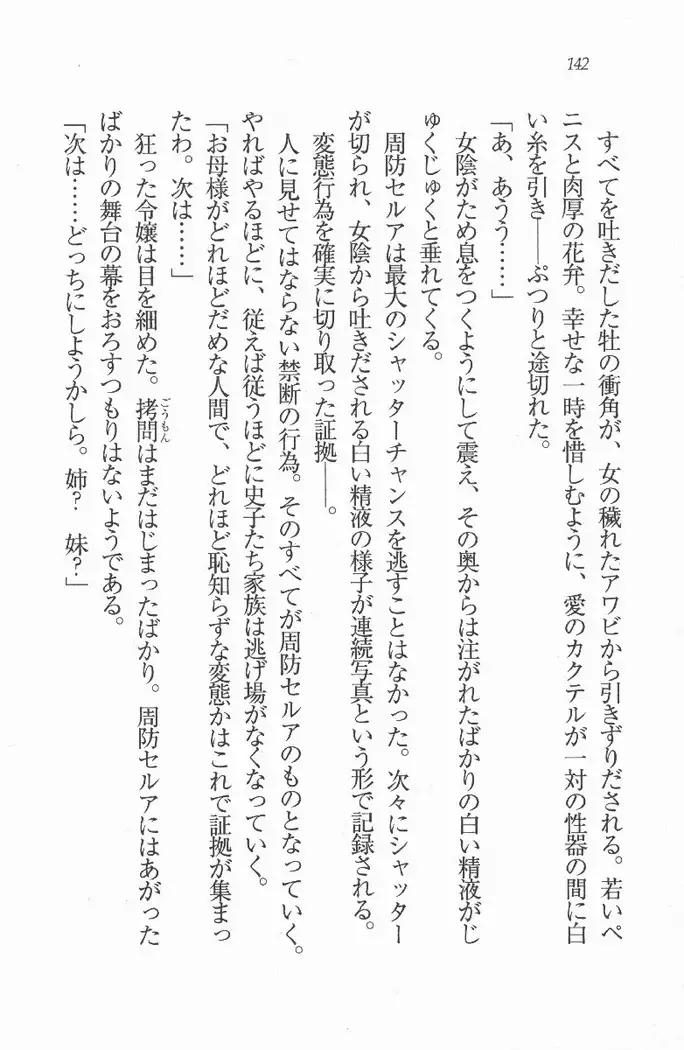 142
すべてを吐きだした牡の衝角が、女の穢れたアワビから引きずりだされる。若いペ
ニスと肉厚の花弁。幸せな一時を惜しむように、愛のカクテルが一対の性器の間に白
い糸を引き――ぷつりと途切れた。
「あ、あうう……」
女陰がため息をつくようにして震え、その奥からは注がれたばかりの白い精液がじ
ゅくじゅくと垂れてくる。
周防セルアは最大のシャッターチャンスを逃すことはなかった。次々にシャッター
が切られ、女陰から吐きだされる白い精液の様子が連続写真という形で記録される。
変態行為を確実に切り取った証拠――。
人に見せてはならない禁断の行為。そのすべてが周防セルアのものとなっていく。
やればやるほどに、従えば従うほどに史子たち家族は逃げ場がなくなっていく。
「お母様がどれほどだめな人間で、どれほど恥知らずな変態かはこれで証拠が集まっ
たわ。次は……」
狂った令嬢は目を細めた。拷問ごうもんはまだはじまったばかり。周防セルアにはあがった
ばかりの舞台の幕をおろすつもりはないようである。
「次は……どっちにしようかしら。姉？　妹？」